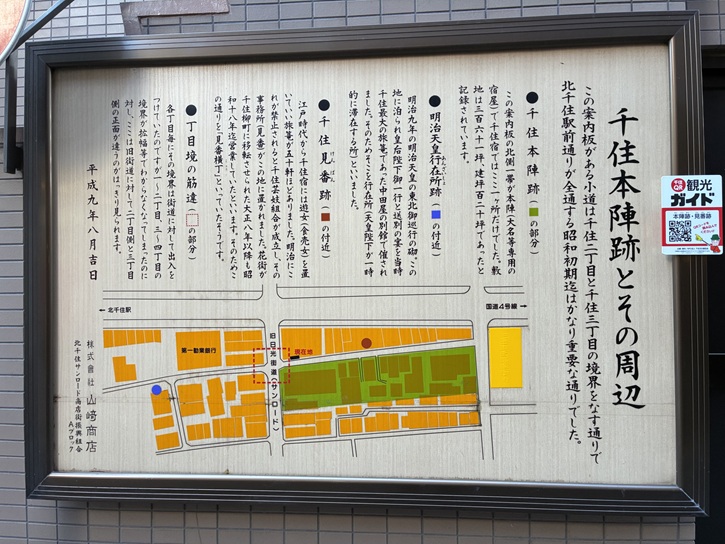 千住本陣跡とその周辺
この案内板がある小道は千住二丁目と千住三丁目の境界をなす通りで
北千住駅前通りが全通する昭和初期迄はかなり重要な通りでした。
●千住本陣跡(■の部分)
この案内板の北側一帯が本陣(大名等専用の
宿屋)で千住宿ではここ一ヶ所だけでした。敷
地は三百六十一坪、建坪百二十坪であったと
記録されています。
●明治天皇行在所跡(■の付近)
あんざいしょ
明治九年の明治天皇の東北御巡行の砌、この
地に泊られ皇后陛下御一行と送別の宴を当時
千住最大の旅篭であった中田屋の別館で催され
ました。そのためそこを行在所(天皇陛下が一時
的に滞在する所)といいました。
●千住見番跡(■の付近)
けんばん
江戸時代から千住宿には遊女(食売女)を置
いてい旅篭が五十軒ほどありました。明治にこ
れが禁止されると千住芸妓組合が成立し、その
事務所(見番)がこの地に置かれました。花街が
千住柳町に移転させられた大正八年以降も昭
和十八年迄営業していたといいます。そのためこ
の通りを「見番横丁」といっていたそうです。
●丁目境の筋違(□の部分)
各丁目毎にその境界は街道に対して出入を
つけていたのですが一〜二丁目、三〜四丁目の
境界が拡幅等でわからなくなってしまったのに
対し、ここは旧街道に対して二丁目側と三丁目
側の正面が違うのがはっきり見られます。
平成九年八月吉日
株式會社 山﨑商店
北千住サンロード商店街振興組合
Aブロック
←北千住駅
国道4号線→
第一勧業銀行
旧日光街道(サンロード)
現在地
観光
ガイド
本陣跡・見番跡